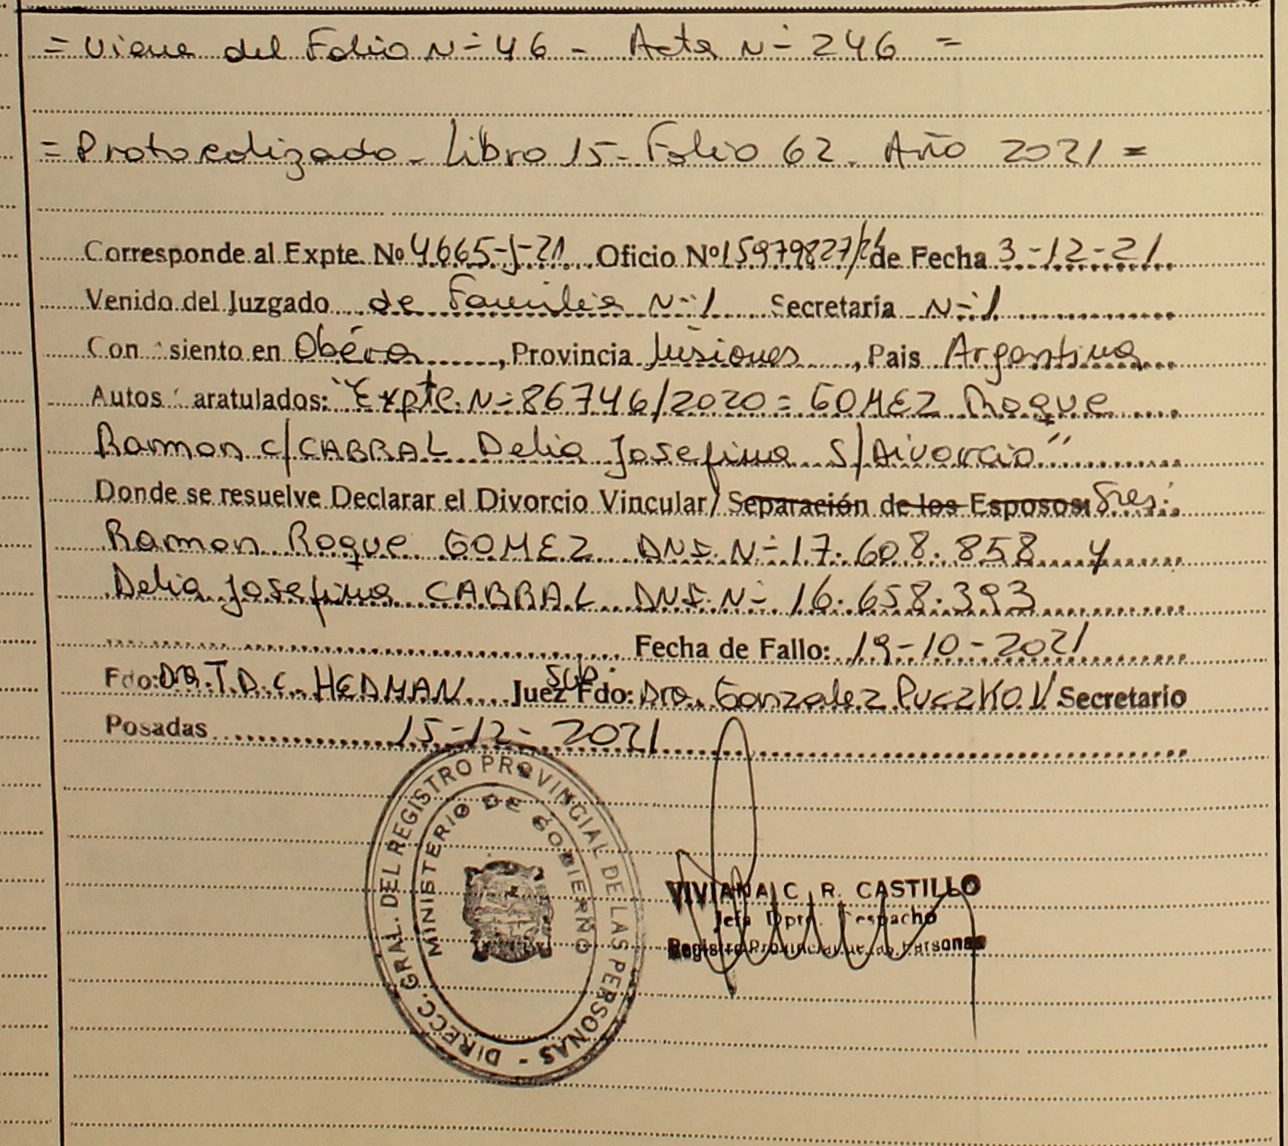 = Viene del Folio N- 46 - Acta N- 246 =
= Protocolizado - Libro 15 - Folio 62. Año 2021 =
Corresponde al Expte. Nº 4665-J-21 Oficio Nº 15979827/21 de Fecha 3-12-21
Venido del Juzgado de Familia N- 1 Secretaría N- 1
Con siento en Oberá, Provincia Misiones, Pais Argentina
Autos aratulados: "Expte. N- 86746/2020 = GOMEZ Roque
Ramon c/ CABRAL Delia Josefina S/ Divorcio"
Donde se resuelve Declarar el Divorcio Vincular/ Separación de los Esposos: Sres:
Ramon Roque GOMEZ DNI. N- 17.608.858 y
Delia Josefina CABRAL DNI. N- 16.658.393
Fecha de Fallo: 19-10-2021
Fdo: Dra. T.D.C. HEDMAN Juez Sub. Fdo: Dra. Gonzalez Puczko V Secretario
Posadas 15-12-2021
DIRECC. GRAL. DEL REGISTRO PROVINCIAL DE LAS PERSONAS -
MINISTERIO DE GOBIERNO
VIVIANA C. R. CASTILLO
Jefa Dpto. Despacho
Registro Provincial de las Personas